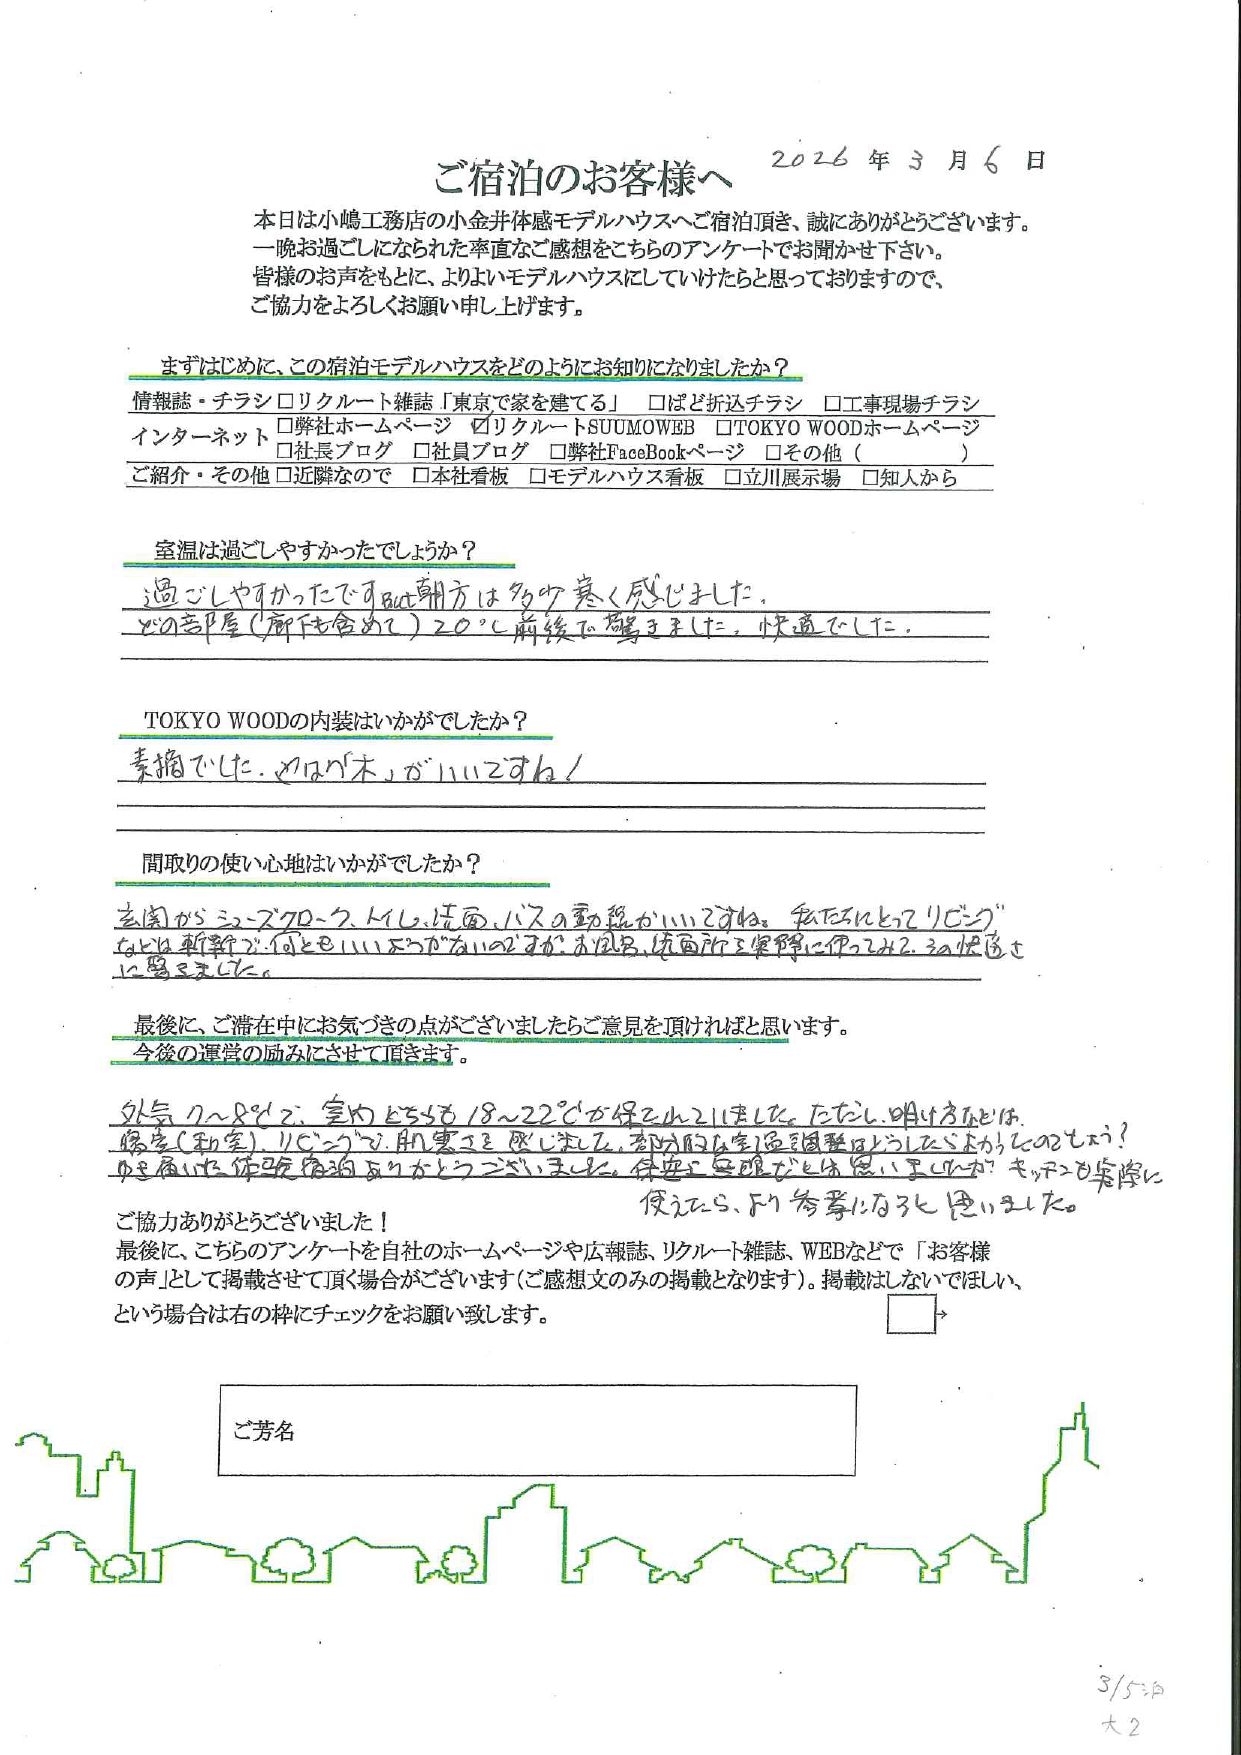 2026年3月6日
ご宿泊のお客様へ
本日は小嶋工務店の小金井体感モデルハウスへご宿泊頂き、誠にありがとうございます。
一晩お過ごしになられた率直なご感想をこちらのアンケートでお聞かせ下さい。
皆様のお声をもとに、よりよいモデルハウスにしていけたらと思っておりますので、
ご協力をよろしくお願い申し上げます。
まずはじめに、この宿泊モデルハウスをどのようにお知りになりましたか？
情報誌・チラシ □リクルート雑誌「東京で家を建てる」 □ぱど折込チラシ □工事現場チラシ
インターネット □弊社ホームページ ☑リクルートSUUMOWEB □TOKYO WOODホームページ
□社長ブログ □社員ブログ □弊社FaceBookページ □その他（ ）
ご紹介・その他 □近隣なので □本社看板 □モデルハウス看板 □立川展示場 □知人から
室温は過ごしやすかったでしょうか？
過ごしやすかったですBut朝方は多少寒く感じました。
どの部屋(廊下も含めて)20℃前後で驚きました。快適でした。
TOKYO WOODの内装はいかがでしたか？
素摘でした。やはり「木」がいいですね！
間取りの使い心地はいかがでしたか？
玄関からシューズクローク、トイレ、洗面、バスの動線がいいですね。私たちにとってリビング
などは斬新で、何ともいいようがないのですが、お風呂、洗面所を実際に使ってみて、その快適さ
に驚きました。
最後に、ご滞在中にお気づきの点がございましたらご意見を頂ければと思います。
今後の運営の励みにさせて頂きます。
外気7〜8℃で、室内どちらも18〜22℃が保たれていました。ただし、明け方などは、
寝室(和室)、リビングで、肌寒さを感じました。部分的な室温調整はどうしたらよかったのでしょう？
ゆき届いた体験宿泊ありがとうございました。保安上無理だとは思いましたが、キッチンも実際に
使えたら、より参考になると思いました。
ご協力ありがとうございました！
最後に、こちらのアンケートを自社のホームページや広報誌、リクルート雑誌、WEBなどで「お客様
の声」として掲載させて頂く場合がございます（ご感想文のみの掲載となります）。掲載はしないでほしい、
という場合は右の枠にチェックをお願い致します。
ご芳名
3/5泊
大2